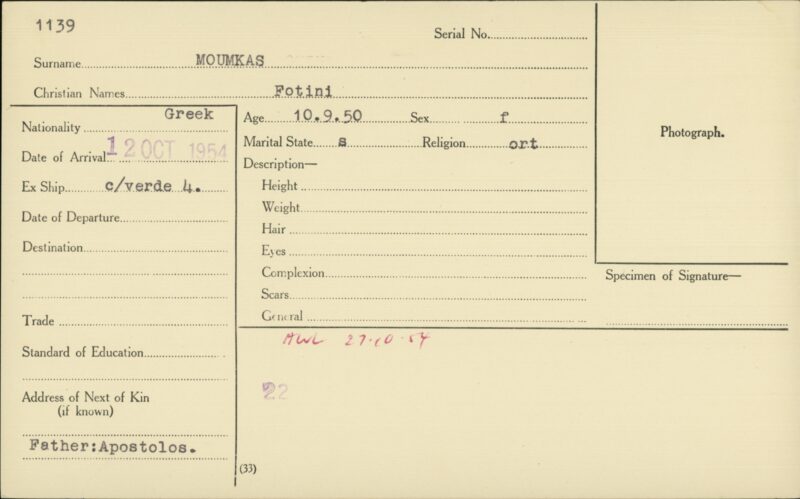 1139
Serial No.
Surname MOUMKAS
Christian Names Fotini
Nationality Greek
Date of Arrival 12 OCT 1954
Ex Ship c/verde 4.
Date of Departure
Destination
Trade
Standard of Education
Address of Next of Kin
(if known)
Father:Apostolos.
Age 10.9.50 Sex f
Marital State s Religion ort
Description—
Height
Weight
Hair
Eyes
Complexion
Scars
General
AWL 27.10.54
22
(33)
Photograph.
Specimen of Signature—